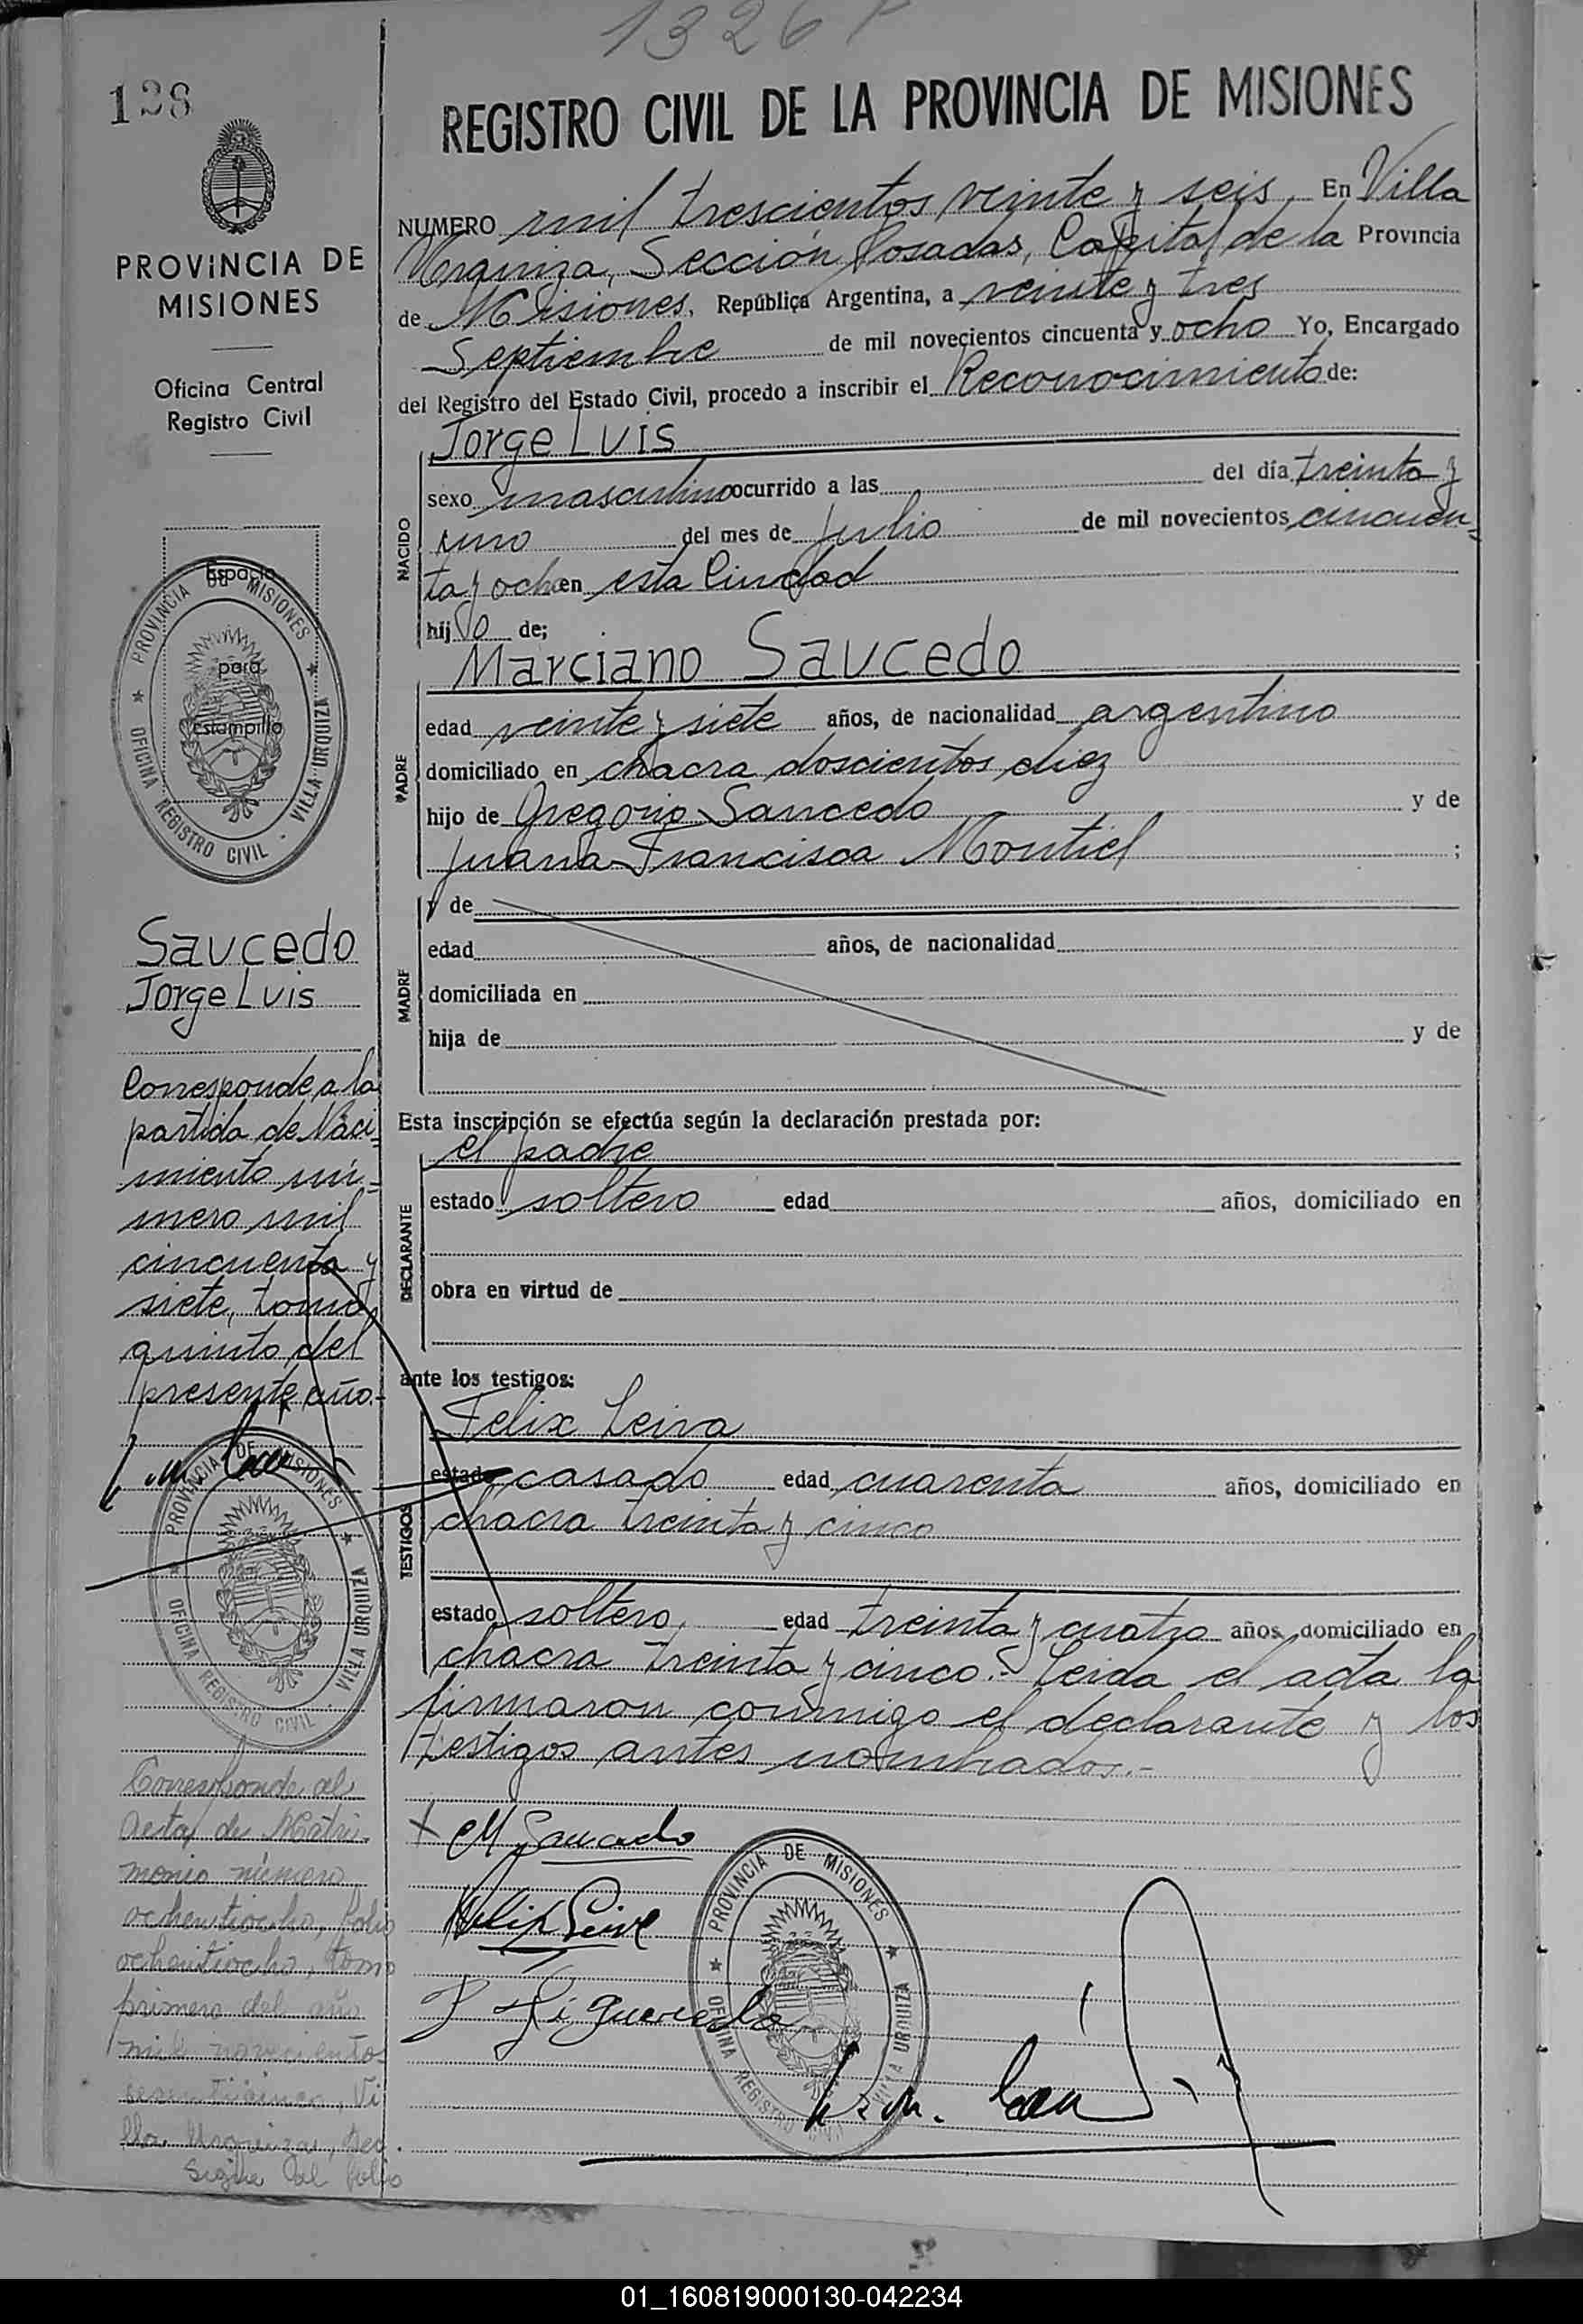 1326
128
REGISTRO CIVIL DE LA PROVINCIA DE MISIONES
PROVINCIA DE
MISIONES
Oficina Central
Registro Civil
NUMERO mil trescientos veinte y seis. En Villa
Urquiza, Sección Posadas, Capital de la Provincia
de Misiones, República Argentina, a veinte y tres
Septiembre de mil novecientos cincuenta y ocho Yo, Encargado
del Registro del Estado Civil, procedo a inscribir el Reconocimiento de:
Jorge Luis
NACIDO
sexo masculino ocurrido a las del día treinta y
uno del mes de Julio de mil novecientos cincuen-
ta y ocho en esta Ciudad
hijo de;
Marciano Saucedo
PADRE
edad veinte y siete años, de nacionalidad argentino
domiciliado en chacra doscientos diez
hijo de Gregorio Saucedo y de
Juana Francisca Montiel ;
MADRE
y de
edad años, de nacionalidad
domiciliada en
hija de y de
Esta inscripción se efectúa según la declaración prestada por:
el padre
DECLARANTE
estado soltero edad años, domiciliado en
obra en virtud de
ante los testigos:
Felix Leiva
TESTIGOS
estado casado edad cuarenta años, domiciliado en
chacra treinta y cinco
estado soltero, edad treinta y cuatro años, domiciliado en
chacra treinta y cinco.- Leida el acta la
firmaron conmigo el declarante y los
testigos antes nombrados.-
M Saucedo
Felix Leiva
Figueredo
PROVINCIA DE MISIONES
OFICINA REGISTRO CIVIL - VILLA URQUIZA
Espacio
para
Estampilla
PROVINCIA DE MISIONES
OFICINA REGISTRO CIVIL - VILLA URQUIZA
Saucedo
Jorge Luis
Corresponde a la
partida de Naci-
miento nú-
mero mil
cincuenta y
siete, tomo
quinto del
presente año.-
PROVINCIA DE MISIONES
OFICINA REGISTRO CIVIL - VILLA URQUIZA
Corresponde al
Acta de Matri-
monio número
ochentiocho, folio
ochentiocho, tomo
primero del año
mil novecientos
sesenticinco, Vi
lla Urquiza, Sec.
Sigue al folio
01_160819000130-042234